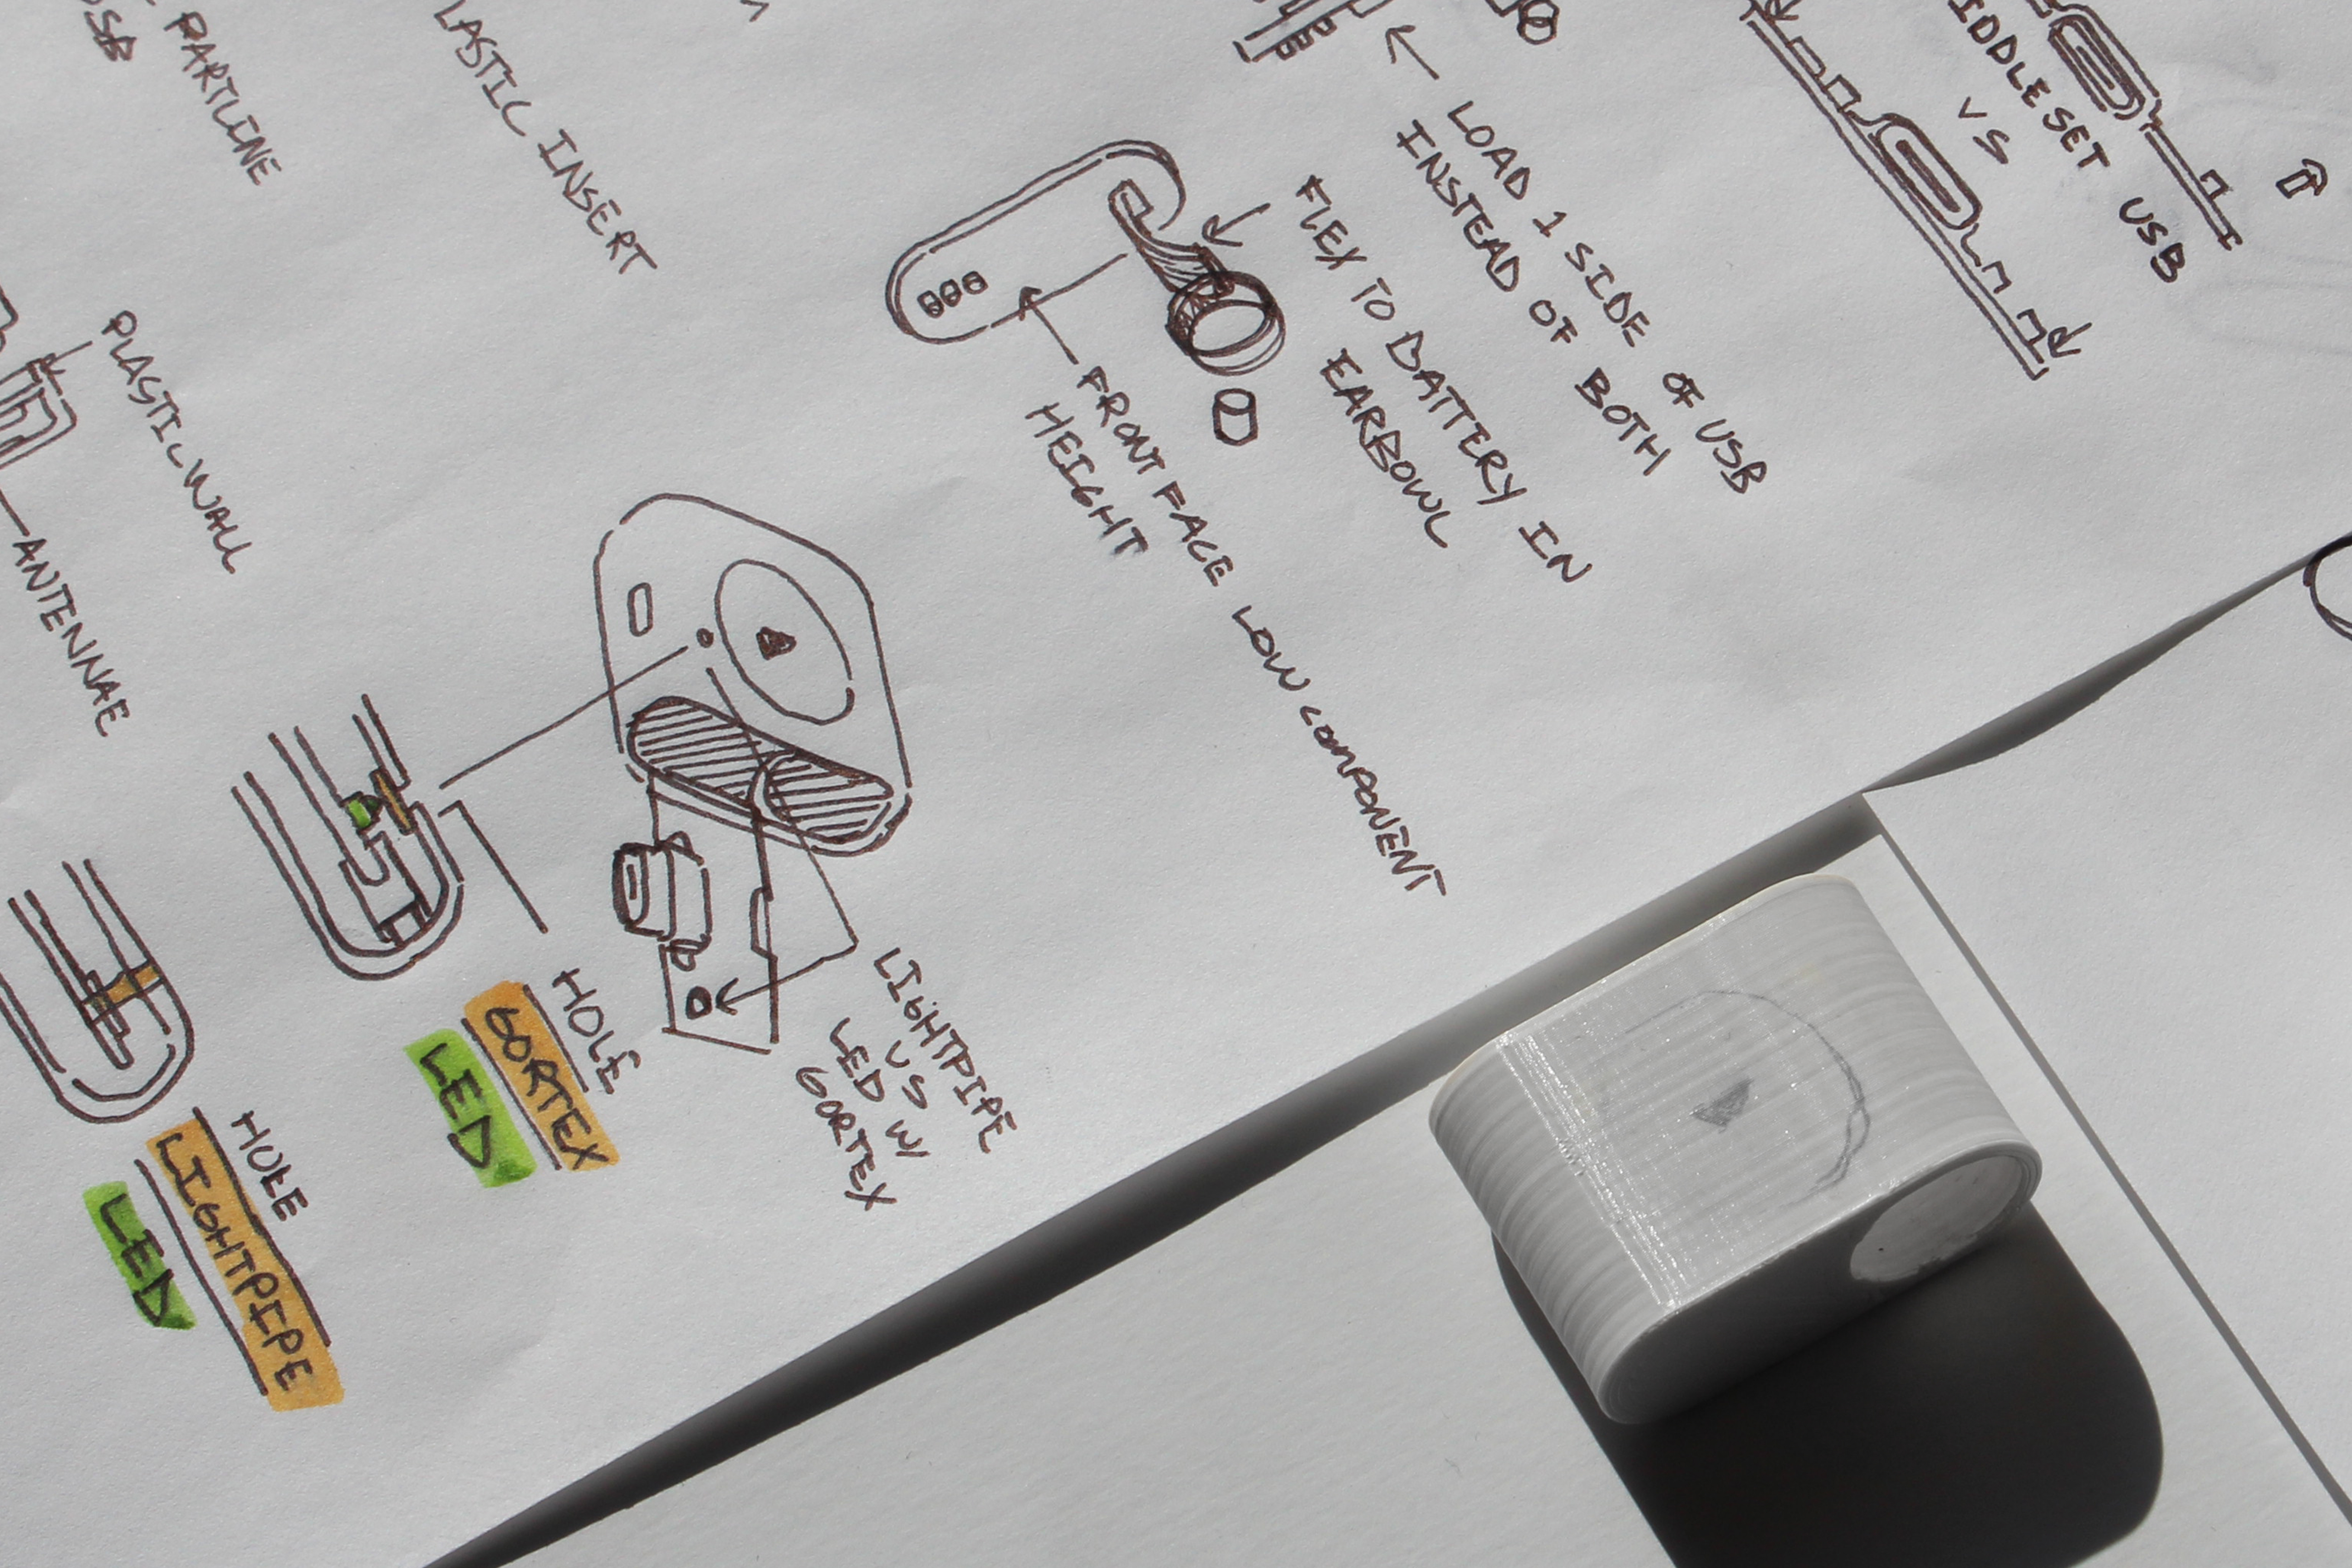 PARTLINE
USB
PLASTIC INSERT
PLASTIC WALL
ANTENNAE
LOAD 1 SIDE OF USB
INSTEAD OF BOTH
FLEX TO BATTERY IN
EARBOWL
FRONT FACE LOW COMPONENT
HEIGHT
MIDDLE SET USB
VS
LIGHTPIPE
VS
LED W/
GORTEX
HOLE
GORTEX
LED
HOLE
LIGHTPIPE
LED